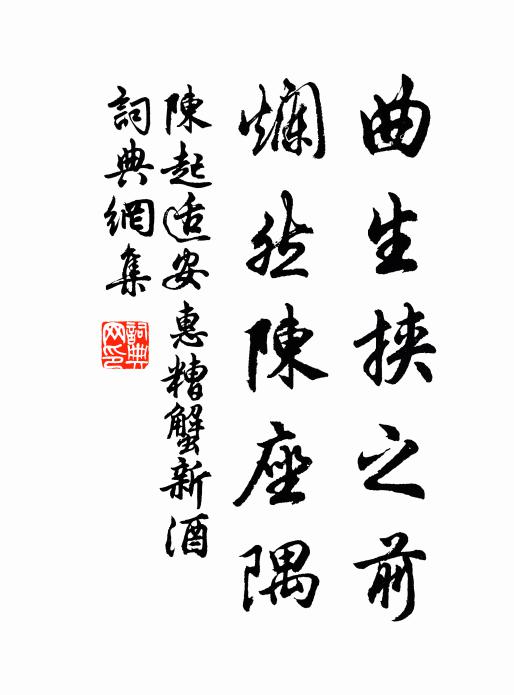 曲生挾之前
爛然陳座隅
陳起适安惠糟蟹新酒
詞典網集
詞典網印